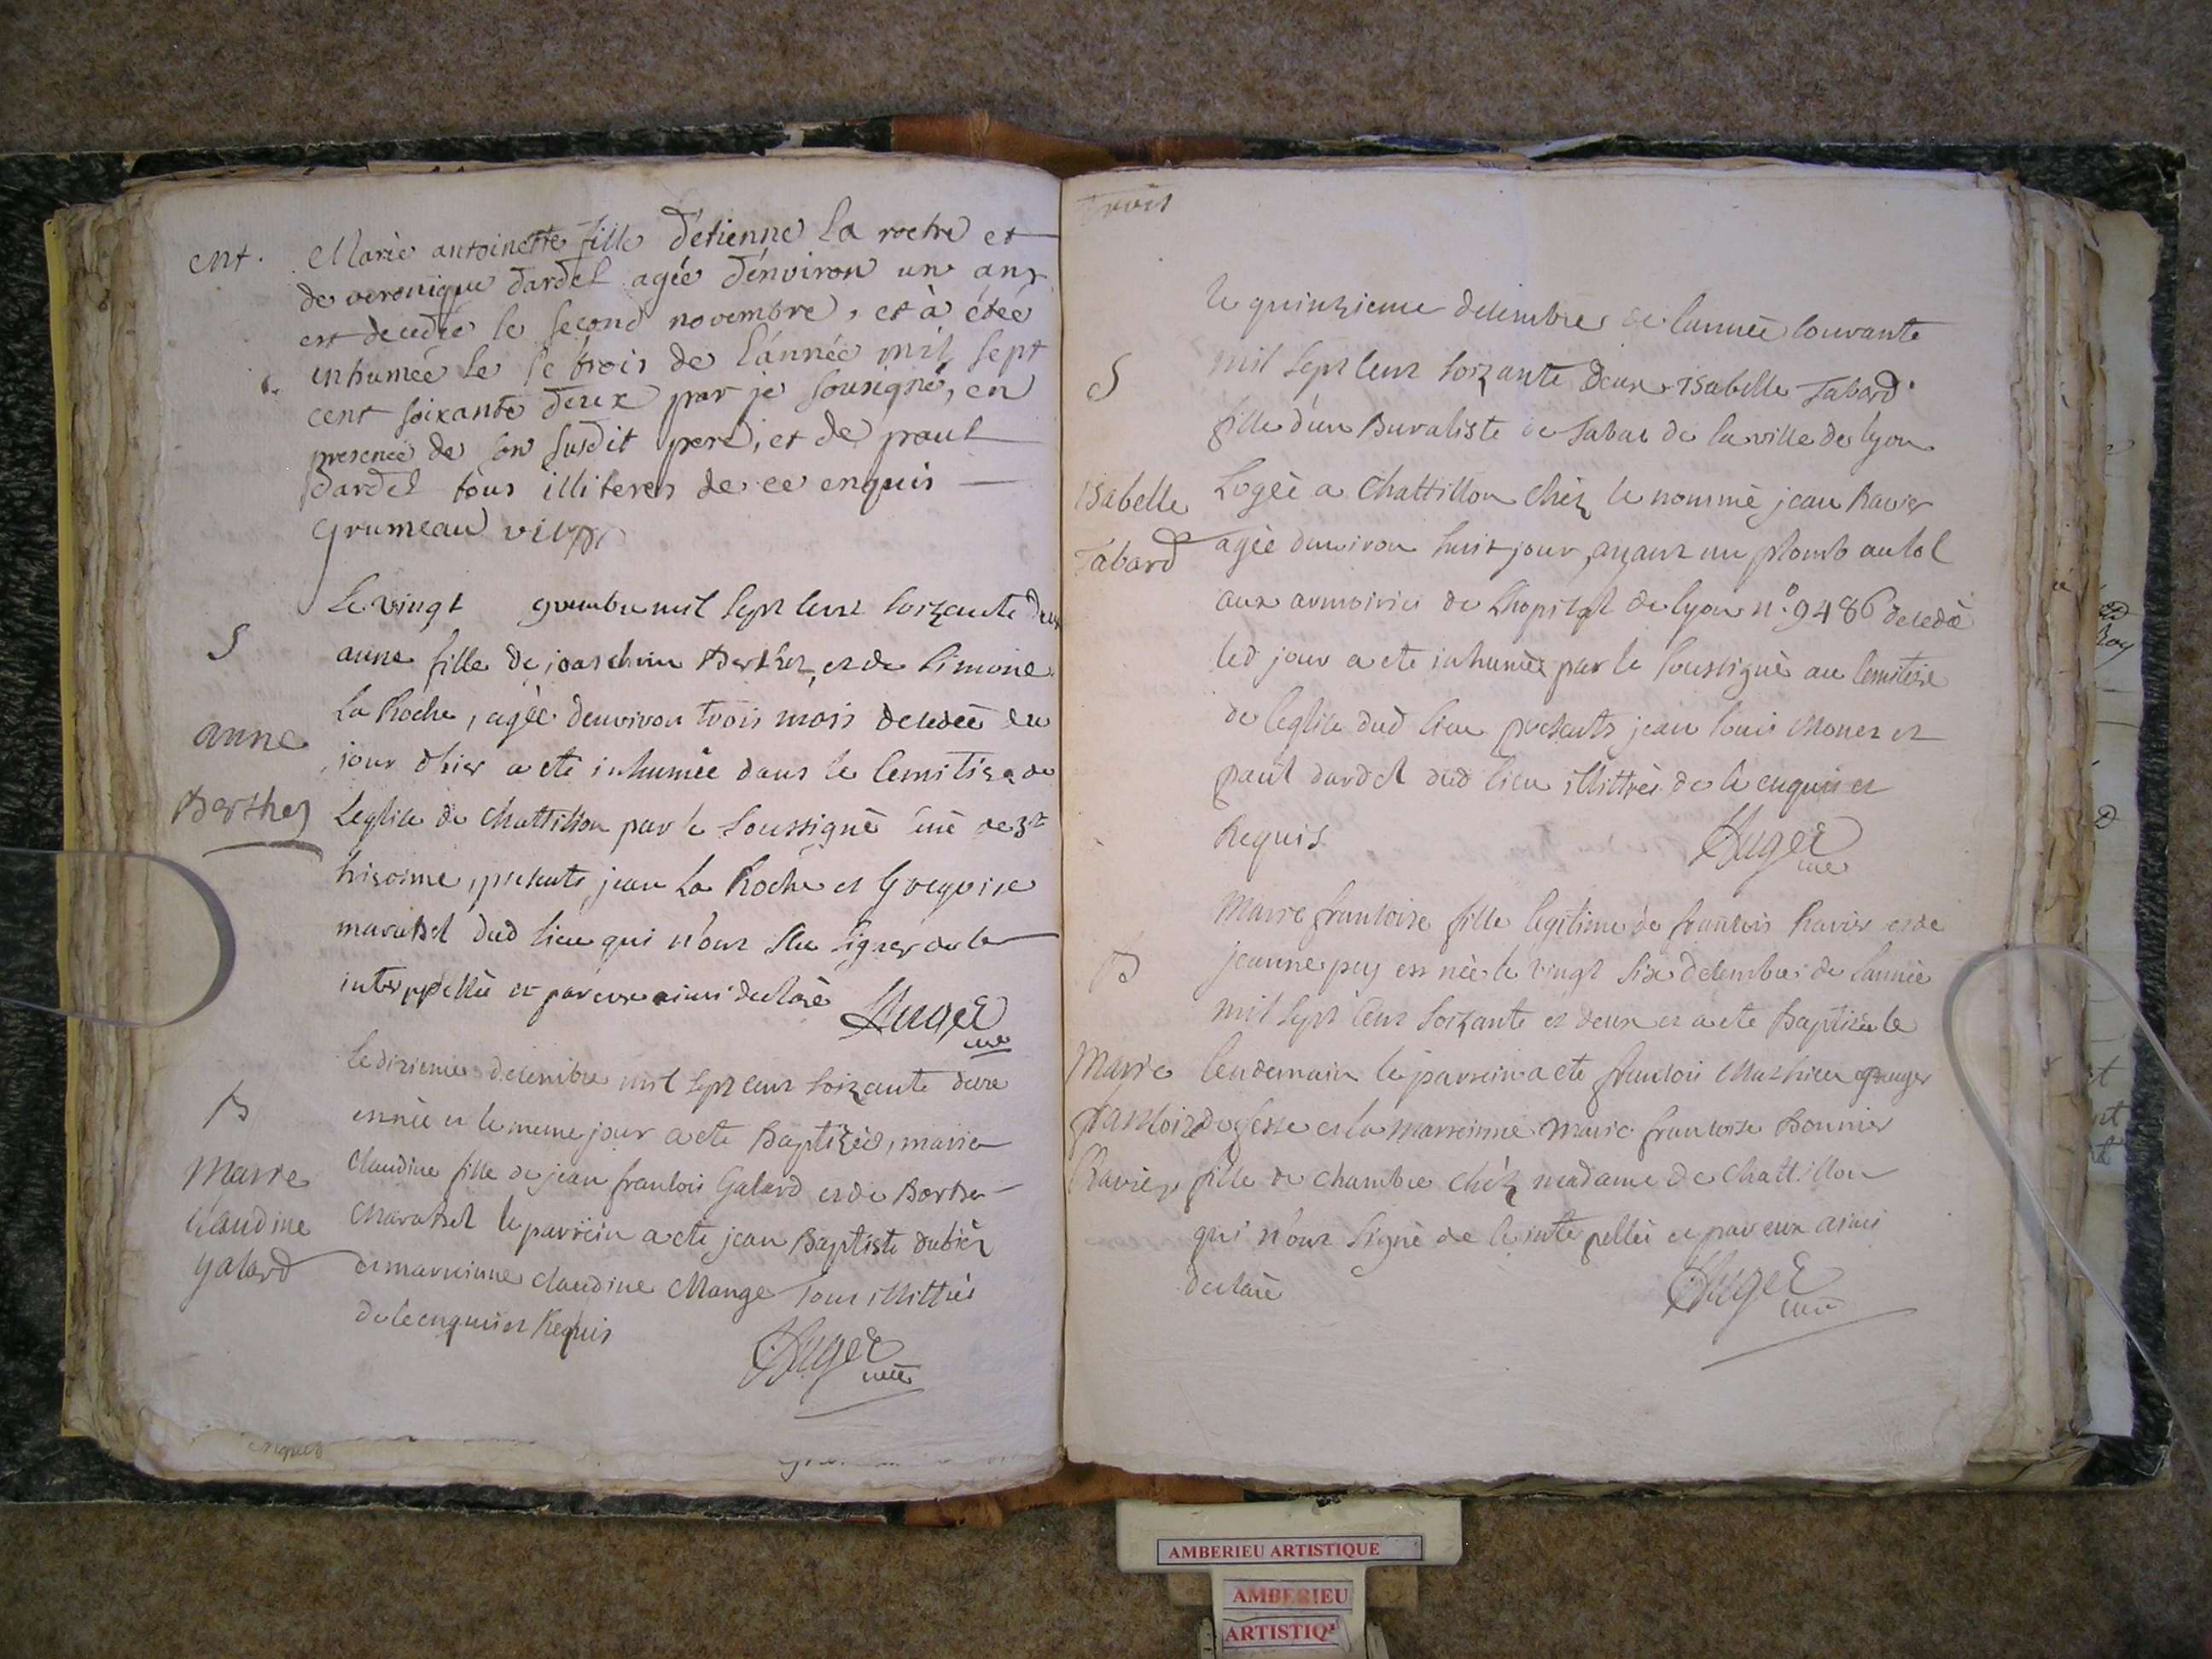 ent. Marie antoinette fille d'étienne la roche et
de veronique dardel agée d'énviron un ans
est decedée le second novembre, et à étée
inhumée le le trois de l'année mil sept
cent soixante deux par je sousigné, en
presence de son susdit pere, et de paul
dardel tous illiteres de ce enquis
grumeau vic
Le vingt 9vembre mil sept cent soizante deux
S
anne fille de joaschim Berthet, et de simone
La Roche, agée denviron trois mois decedée du
anne
jour d'hier a ete inhumée dans le cemitiere de
Berthet
Leglise de Chattillon par le soussigné curé de St
presents jean La Roche et Gregoire
dud lieu qui n'ont sceu signer de ce
interppellé et par eux ainsi declaré Augé
curé
Le dixieme decembre mil sept cent soizante deux
B
est née et le meme jour a ete Baptizée, marie
Marie
Claudine fille de jean francois Galard et de
Claudine
le parrein a ete jean Baptiste
galard
et marreinne claudine Monge Tous illittrés
de ce enquis et Requis
Augé
curé
trois
le quinzieme decembre de l'année courante
S
mil sept cent soizante deux isabelle Tabard
fille d'un Buraliste de Tabac de la ville de lyon
isabelle
Logée a Chattillon chéz le nommé jean Ravier
Tabard
agée denviron huit jour, ayant un plomb au col
aux armoiries de Lhopital de lyon n° 9486 decedée
led jour a ete inhumée par le soussigné au cemitiere
de leglise dud lieu presents jean louis Monet et
paul dardel dud lieu illittrés de ce enquis et
Requis. Augé
curé
Marie francoise fille legitime de francois Ravier et de
B
jeanne pey est née le vingt six decembre de l'année
mil sept cent soizante et deux et a ete Baptizée le
Marie
lendemain le parrein a ete francois Mathieu granger
francoise
de gesse et la marreinne marie francoise Bonnier
Ravier
fille de chambre chéz madame de Chattillon
qui n'ont signé de ce interpellés et par eux ainsi
declaré Augé
curé
AMBERIEU ARTISTIQUE
AMBERIEU
ARTISTIQ